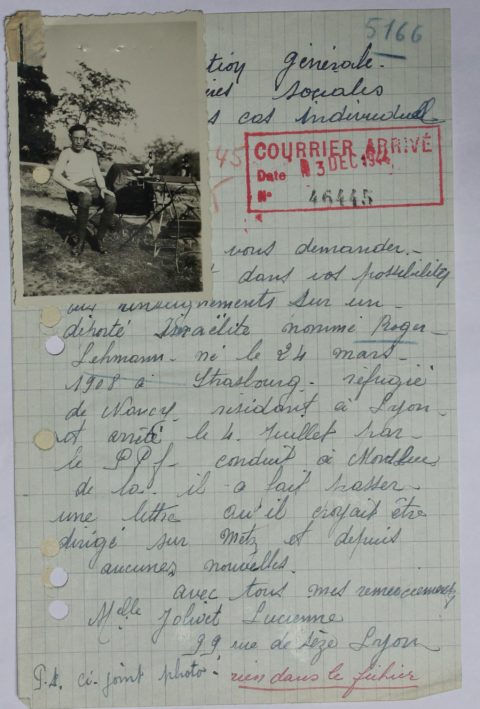 5166
tion Générale.
Sociales
cas Individuel
45
COURRIER ARRIVÉ
Date 3 DEC 1944
N° 46445
vous demander.
dans vos possibilités
renseignements sur un
déporté Israëlite nommé Roger
Lehmann. né le 24 mars
1908 à Strasbourg. réfugié
de Nancy résidant à Lyon
et arrêté le 4 Juillet par
le PPf. conduit à Montluc
de la il a fait passer
une lettre qu'il croyait être
dirigé sur Metz et depuis
aucunes nouvelles.
avec tous mes remerciements
Melle Jolivet Lucienne
99 rue de Sèze Lyon
P.S. ci-joint photo. rien dans le fichier